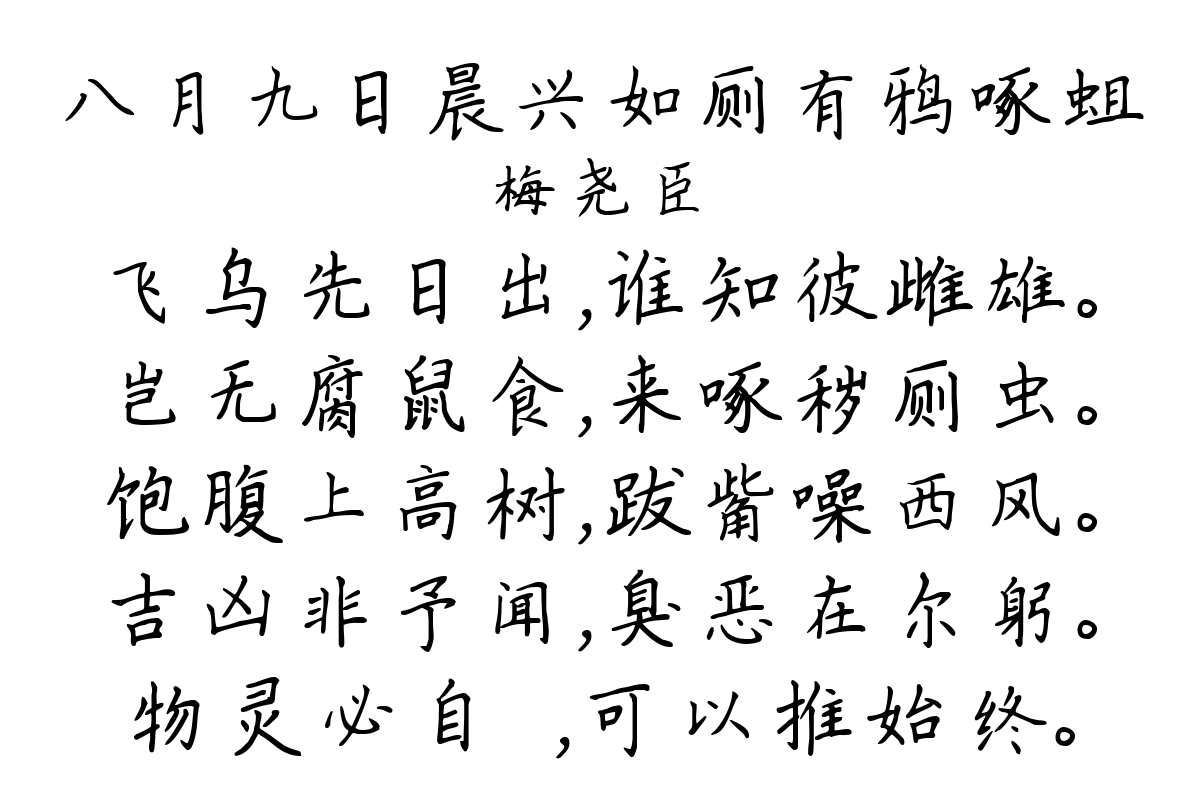 八月九日晨兴如厕有鸦啄蛆
梅尧臣
飞乌先日出,谁知彼雌雄。
岂无腐鼠食,来啄秽厕虫。
饱腹上高树,跋觜噪西风。
吉凶非予闻,臭恶在尔躬。
物灵必自 ,可以推始终。